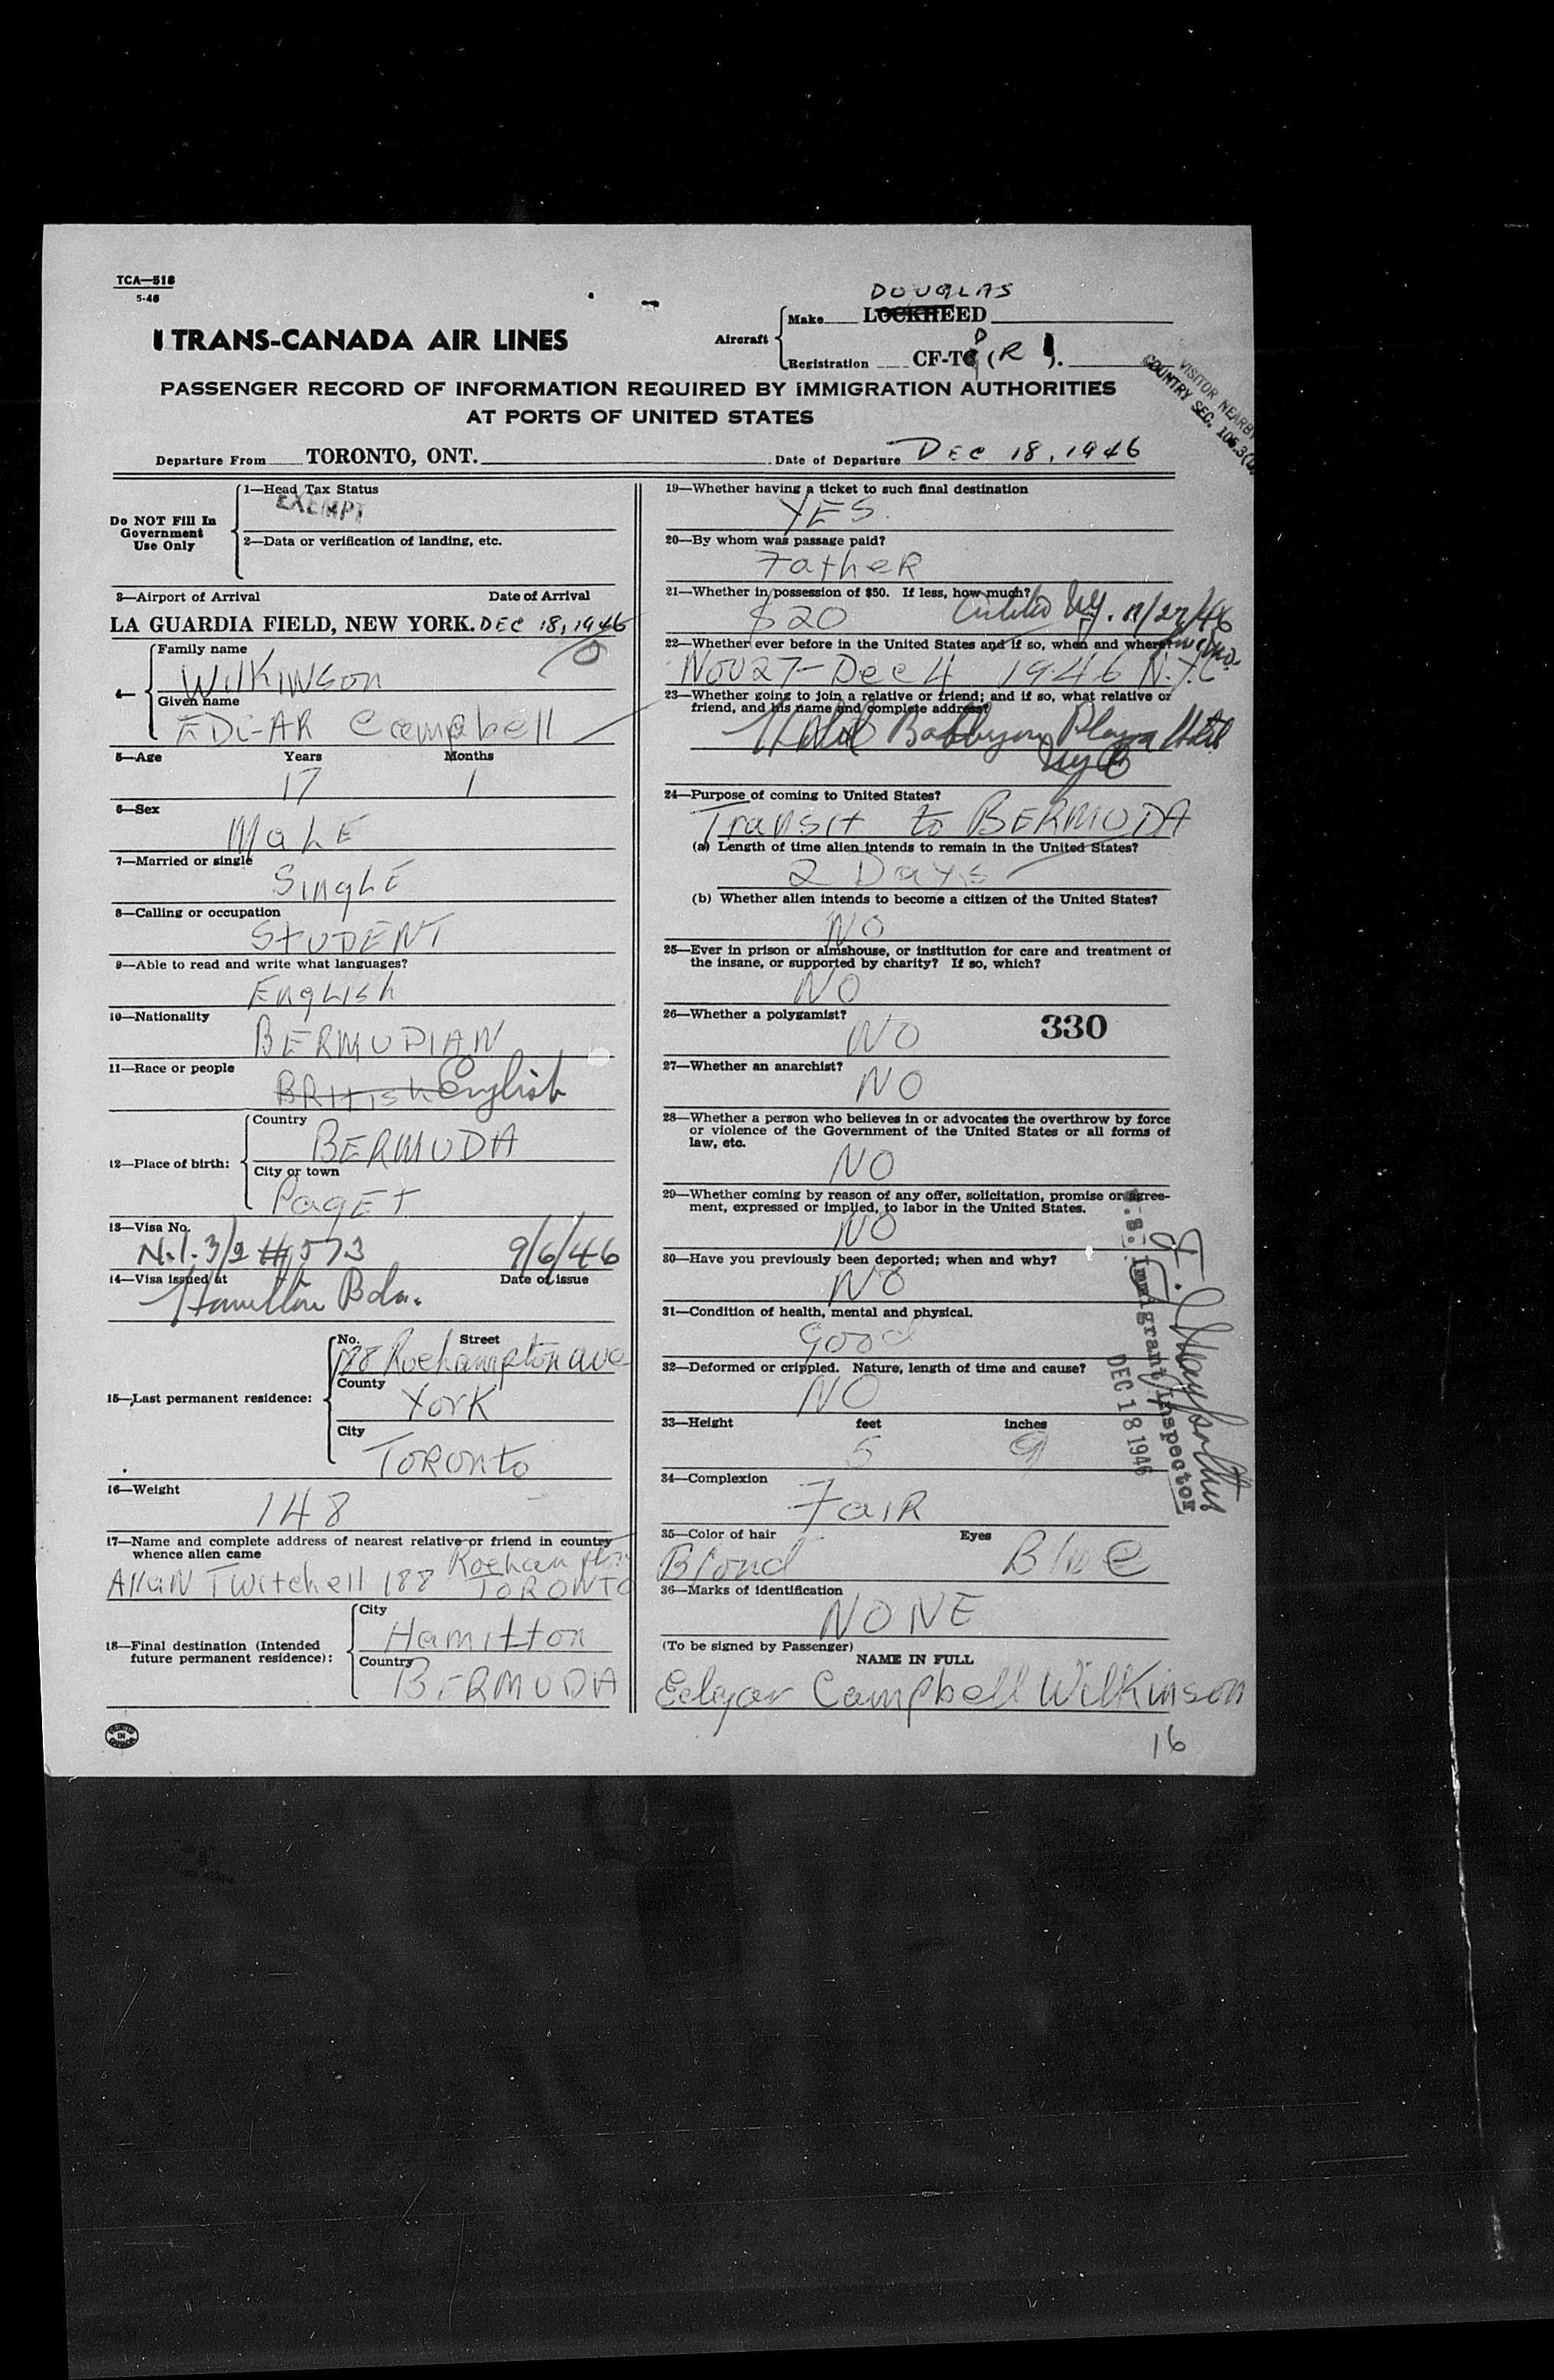 TCA—518
5-46
TRANS-CANADA AIR LINES
DOUGLAS
Aircraft
Make LOCKHEED
Registration CF-T (R ).
VISITOR NEARBY
COUNTRY SEC. 105.3(
PASSENGER RECORD OF INFORMATION REQUIRED BY IMMIGRATION AUTHORITIES
AT PORTS OF UNITED STATES
Departure From TORONTO, ONT. Date of Departure DEC 18, 1946
Do NOT Fill In
Government
Use Only
1—Head Tax Status
EXEMPT
2—Data or verification of landing, etc.
3—Airport of Arrival Date of Arrival
LA GUARDIA FIELD, NEW YORK. DEC 18, 1946
4—
Family name
WilKINSon
Given name
EDGAR Campbell
5—Age Years Months
17 1
6—Sex
MaLE
7—Married or single
SinglE
8—Calling or occupation
STUDENT
9—Able to read and write what languages?
EngLish
10—Nationality
BERMUDIAN
11—Race or people
BRitish English
12—Place of birth:
Country
BERMUDA
City or town
PagET
13—Visa No.
N.I. 3/2 #1573 9/6/46
14—Visa issued at Date of issue
Hamilton Bda.
15—Last permanent residence:
No. Street
188 Roehampton ave
County
York
City
TORONto
16—Weight
148
17—Name and complete address of nearest relative or friend in country
whence alien came
Roehampton
AllaN Twitchell 188 TORONTO
18—Final destination (Intended
future permanent residence):
City
Hamilton
Country
BERMUDA
19—Whether having a ticket to such final destination
YES.
20—By whom was passage paid?
FatheR
21—Whether in possession of $50. If less, how much?
$20
22—Whether ever before in the United States and if so, when and where?
Nov 27 - Dec 4 1946 N.Y.C
23—Whether going to join a relative or friend; and if so, what relative or
friend, and his name and complete address?
Plaza Hotel
NYC
24—Purpose of coming to United States?
Transit to BERMUDA
(a) Length of time alien intends to remain in the United States?
2 Days
(b) Whether alien intends to become a citizen of the United States?
NO
25—Ever in prison or almshouse, or institution for care and treatment of
the insane, or supported by charity? If so, which?
NO
26—Whether a polygamist?
NO
330
27—Whether an anarchist?
NO
28—Whether a person who believes in or advocates the overthrow by force
or violence of the Government of the United States or all forms of
law, etc.
NO
29—Whether coming by reason of any offer, solicitation, promise or agree-
ment, expressed or implied, to labor in the United States.
NO
30—Have you previously been deported; when and why?
NO
31—Condition of health, mental and physical.
Good
32—Deformed or crippled. Nature, length of time and cause?
NO
33—Height feet inches
5 9
34—Complexion
FaiR
35—Color of hair Eyes
Blond Blue
36—Marks of identification
NONE
(To be signed by Passenger)
NAME IN FULL
Edgar Campbell Wilkinson
U.S. Immigrant Inspector
DEC 18 1946
16
PRINTED
IN
CANADA